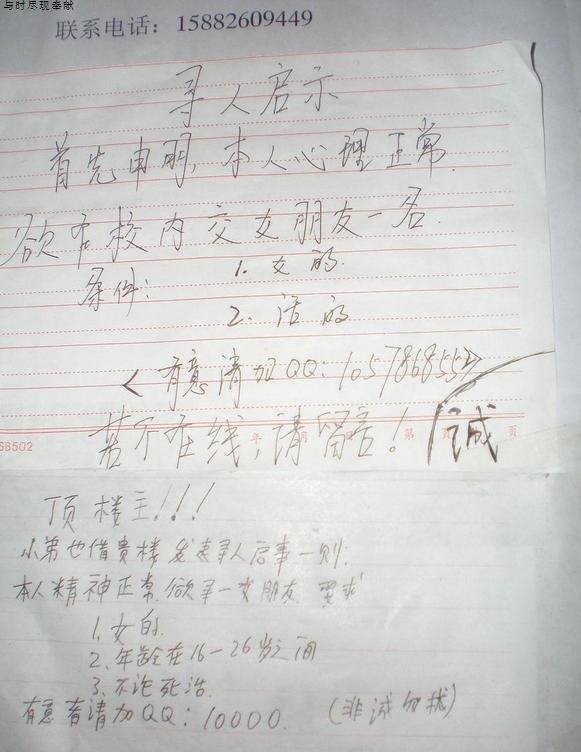 与时尽现奉献
联系电话：15882609449
寻人启示
首先申明，本人心理正常.
欲在校内交女朋友一名.
条件：1. 女的.
2. 活的
<有意请加QQ：1057868552>
若不在线，请留言！诚
68502 年 月 日 第 页 页
顶楼主！！！
小弟也借贵楼发表寻人启事一则：
本人精神正常.欲寻一女朋友 要求
1. 女的.
2. 年龄在16-26岁之间
3. 不论死活.
有意者请加QQ：10000. （非诚勿扰）